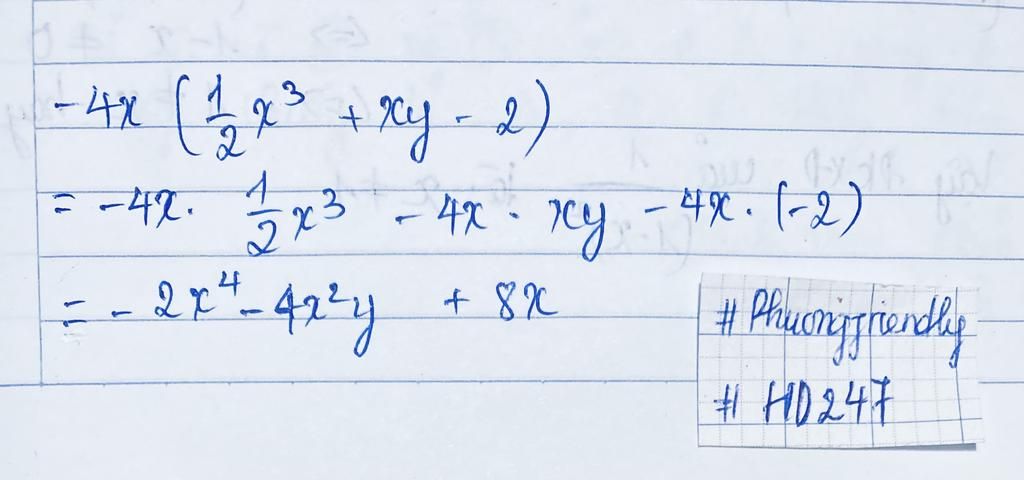 -4x (1/2 x³ + xy - 2)
= -4x. 1/2 x³ - 4x . xy - 4x. (-2)
= - 2x⁴ - 4x²y + 8x
# Phuongfriendly
# HD247